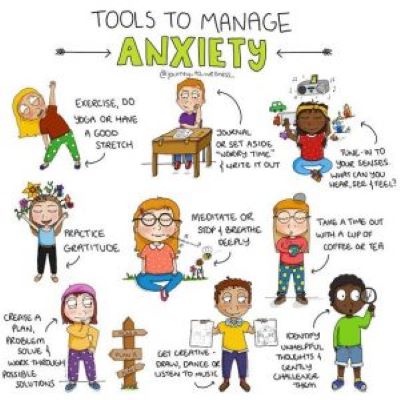 TOOLS TO MANAGE
ANXIETY
EXERCISE, DO
YOGA OR HAVE
A GOOD
STRETCH
JOURNAL
OR SET ASIDE
"WORRY TIME"
& WRITE IT OUT
TUNE-IN TO
YOUR SENSES.
WHAT CAN YOU
HEAR, SEE & FEEL?
PRACTICE
GRATITUDE
MEDITATE OR
STOP & BREATHE
DEEPLY
TAKE A TIME OUT
WITH A CUP OF
COFFEE OR TEA
CREATE A
PLAN,
PROBLEM
SOLVE &
WORK THROUGH
POSSIBLE
SOLUTIONS
PLAN A
GET CREATIVE -
DRAW, DANCE OR
LISTEN TO MUSIC
IDENTIFY
UNHELPFUL
THOUGHTS &
GENTLY
CHALLENGE
THEM